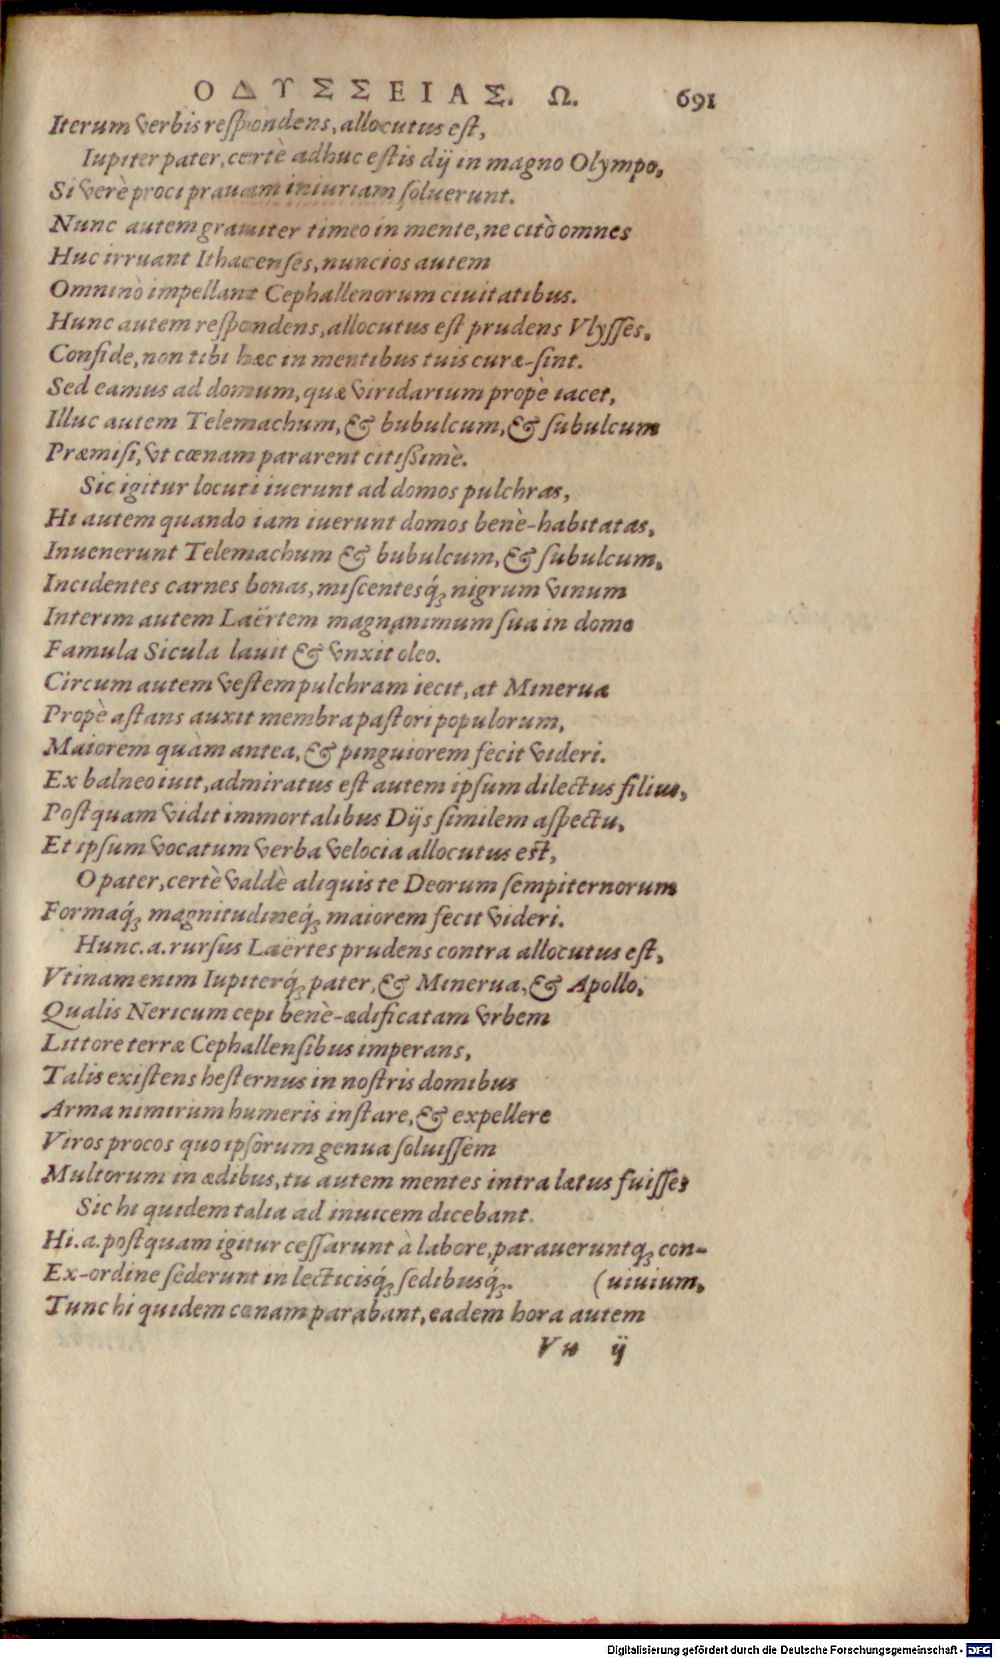 ΟΔΥΣΣΕΙΑΣ. Ω. 691
Iterum verbis reſpondens, allocutus eſt,
Iupiter pater, certè adhuc eſtis dij in magno Olympo,
Si verè proci prauam iniuriam ſoluerunt.
Nunc autem grauiter timeo in mente, ne citò omnes
Huc irruant Ithacenſes, nuncios autem
Omninò impellant Cephallenorum ciuitatibus.
Hunc autem reſpondens, allocutus eſt prudens Vlyſſes,
Confide, non tibi hæc in mentibus tuis curæ-ſint.
Sed eamus ad domum, quæ viridarium propè iacet,
Illuc autem Telemachum, & bubulcum, & ſubulcum
Præmiſi, vt cœnam pararent citiſsimè.
Sic igitur locuti iuerunt ad domos pulchras,
Hi autem quando iam iuerunt domos benè-habitatas,
Inuenerunt Telemachum & bubulcum, & ſubulcum,
Incidentes carnes bonas, miſcentesq́; nigrum vinum
Interim autem Laërtem magnanimum ſua in domo
Famula Sicula lauit & vnxit oleo.
Circum autem veſtem pulchram iecit, at Minerua
Propè aſtans auxit membra paſtori populorum,
Maiorem quàm antea, & pinguiorem fecit videri.
Ex balneo iuit, admiratus eſt autem ipſum dilectus filius,
Poſtquam vidit immortalibus Dijs ſimilem aſpectu,
Et ipſum vocatum verba velocia allocutus eſt,
O pater, certè valdè aliquis te Deorum ſempiternorum
Formaq́; magnitudineq́; maiorem fecit videri.
Hunc. a. rurſus Laërtes prudens contra allocutus eſt,
Vtinam enim Iupiterq́; pater, & Minerua, & Apollo,
Qualis Nericum cepi benè-ædificatam vrbem
Littore terræ Cephallenſibus imperans,
Talis exiſtens heſternus in noſtris domibus
Arma nimirum humeris inſtare, & expellere
Viros procos quo ipſorum genua ſoluiſſem
Multorum in ædibus, tu autem mentes intra lætus fuiſſes
Sic hi quidem talia ad inuicem dicebant.
Hi. a. poſtquam igitur ceſſarunt à labore, paraueruntq́; con-
Ex-ordine ſederunt in lecticisq́; ſedibusq́;. (uiuium,
Tunc hi quidem cœnam parabant, eadem hora autem
Vu ij
Digitalisierung gefördert durch die Deutsche Forschungsgemeinschaft - DFG